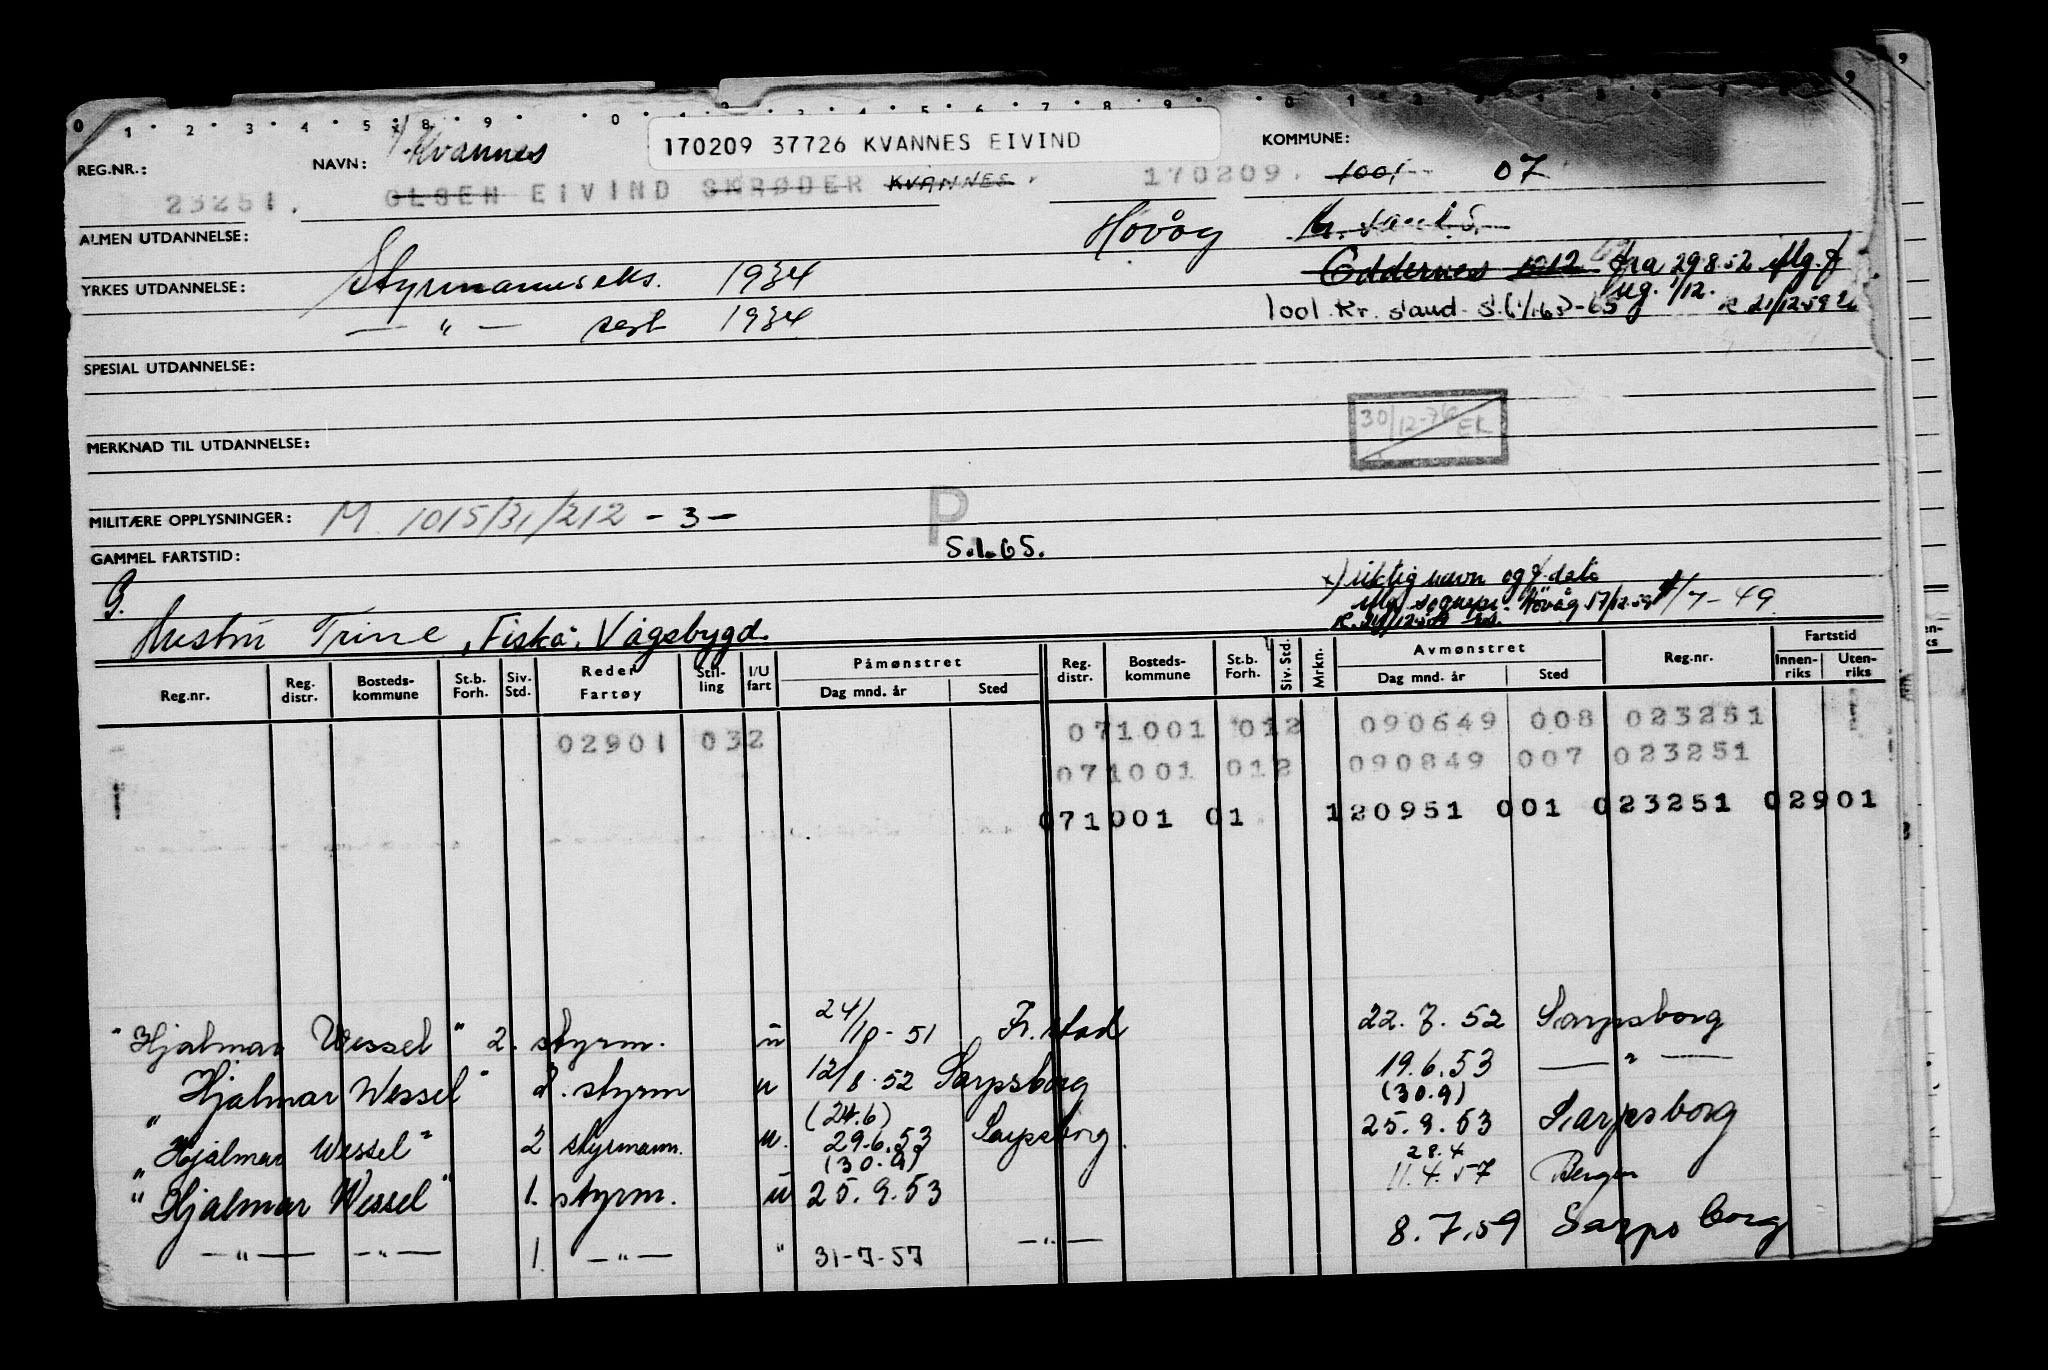 0 1 2 3 4 5 8 9 0 1 2 3 4 5 6 7 8 9 0 1 2 3 4 5 6 7 8 9
REG.NR.: NAVN: Kvannes 170209 37726 KVANNES EIVIND KOMMUNE:
23251. OLSEN EIVIND SKRØDER KVANNES. 170209. 1001 07
ALMEN UTDANNELSE: Høvåg Kr. sand. S.
YRKES UTDANNELSE: Styrmannseks. 1934 Oddernes 1012 fra 29.8.52
— " — sert 1934 1001 Kr. sand. S. 21/12.59
SPESIAL UTDANNELSE:
30/12-76 EK
MERKNAD TIL UTDANNELSE:
MILITÆRE OPPLYSNINGER: M 1015/31/212 - 3 - P
GAMMEL FARTSTID: S.1.65.
G. x) riktig navn og f. dato
Høvåg 17/12.59 1/7-49
Hustru Trine, Fiskå, Vågsbygd.
Reg.nr. Reg. distr. Bosteds-kommune St.b. Forh. Siv. Std. Reder Fartøy Stil-ling I/U fart Påmønstret Dag mnd. år Sted Reg. distr. Bosteds-kommune St.b. Forh. Siv. Std. Mrkn. Avmønstret Dag mnd. år Sted Reg.nr. Fartstid Innen-riks Uten-riks
02901 032 071001 012 090649 008 023251
071001 012 090849 007 023251
071001 01 120951 001 023251 02901
"Hjalmar Wessel" 2. styrm. u 24/10-51 Fr.stad 22.7.52 Sarpsborg
"Hjalmar Wessel" 2. styrm u 12/8.52 Sarpsborg 19.6.53 — " —
(24.6) (30.9)
"Hjalmar Wessel" 2 styrmann. u. 29.6.53 Sarpsborg. 25.9.53 Sarpsborg
(30.9) 28.4
"Hjalmar Wessel" 1. styrm. u 25.9.53 11.4.57 Bergen
— " — — " — 1. — " — " 31-7-57 — " — 8.7.59 Sarpsborg